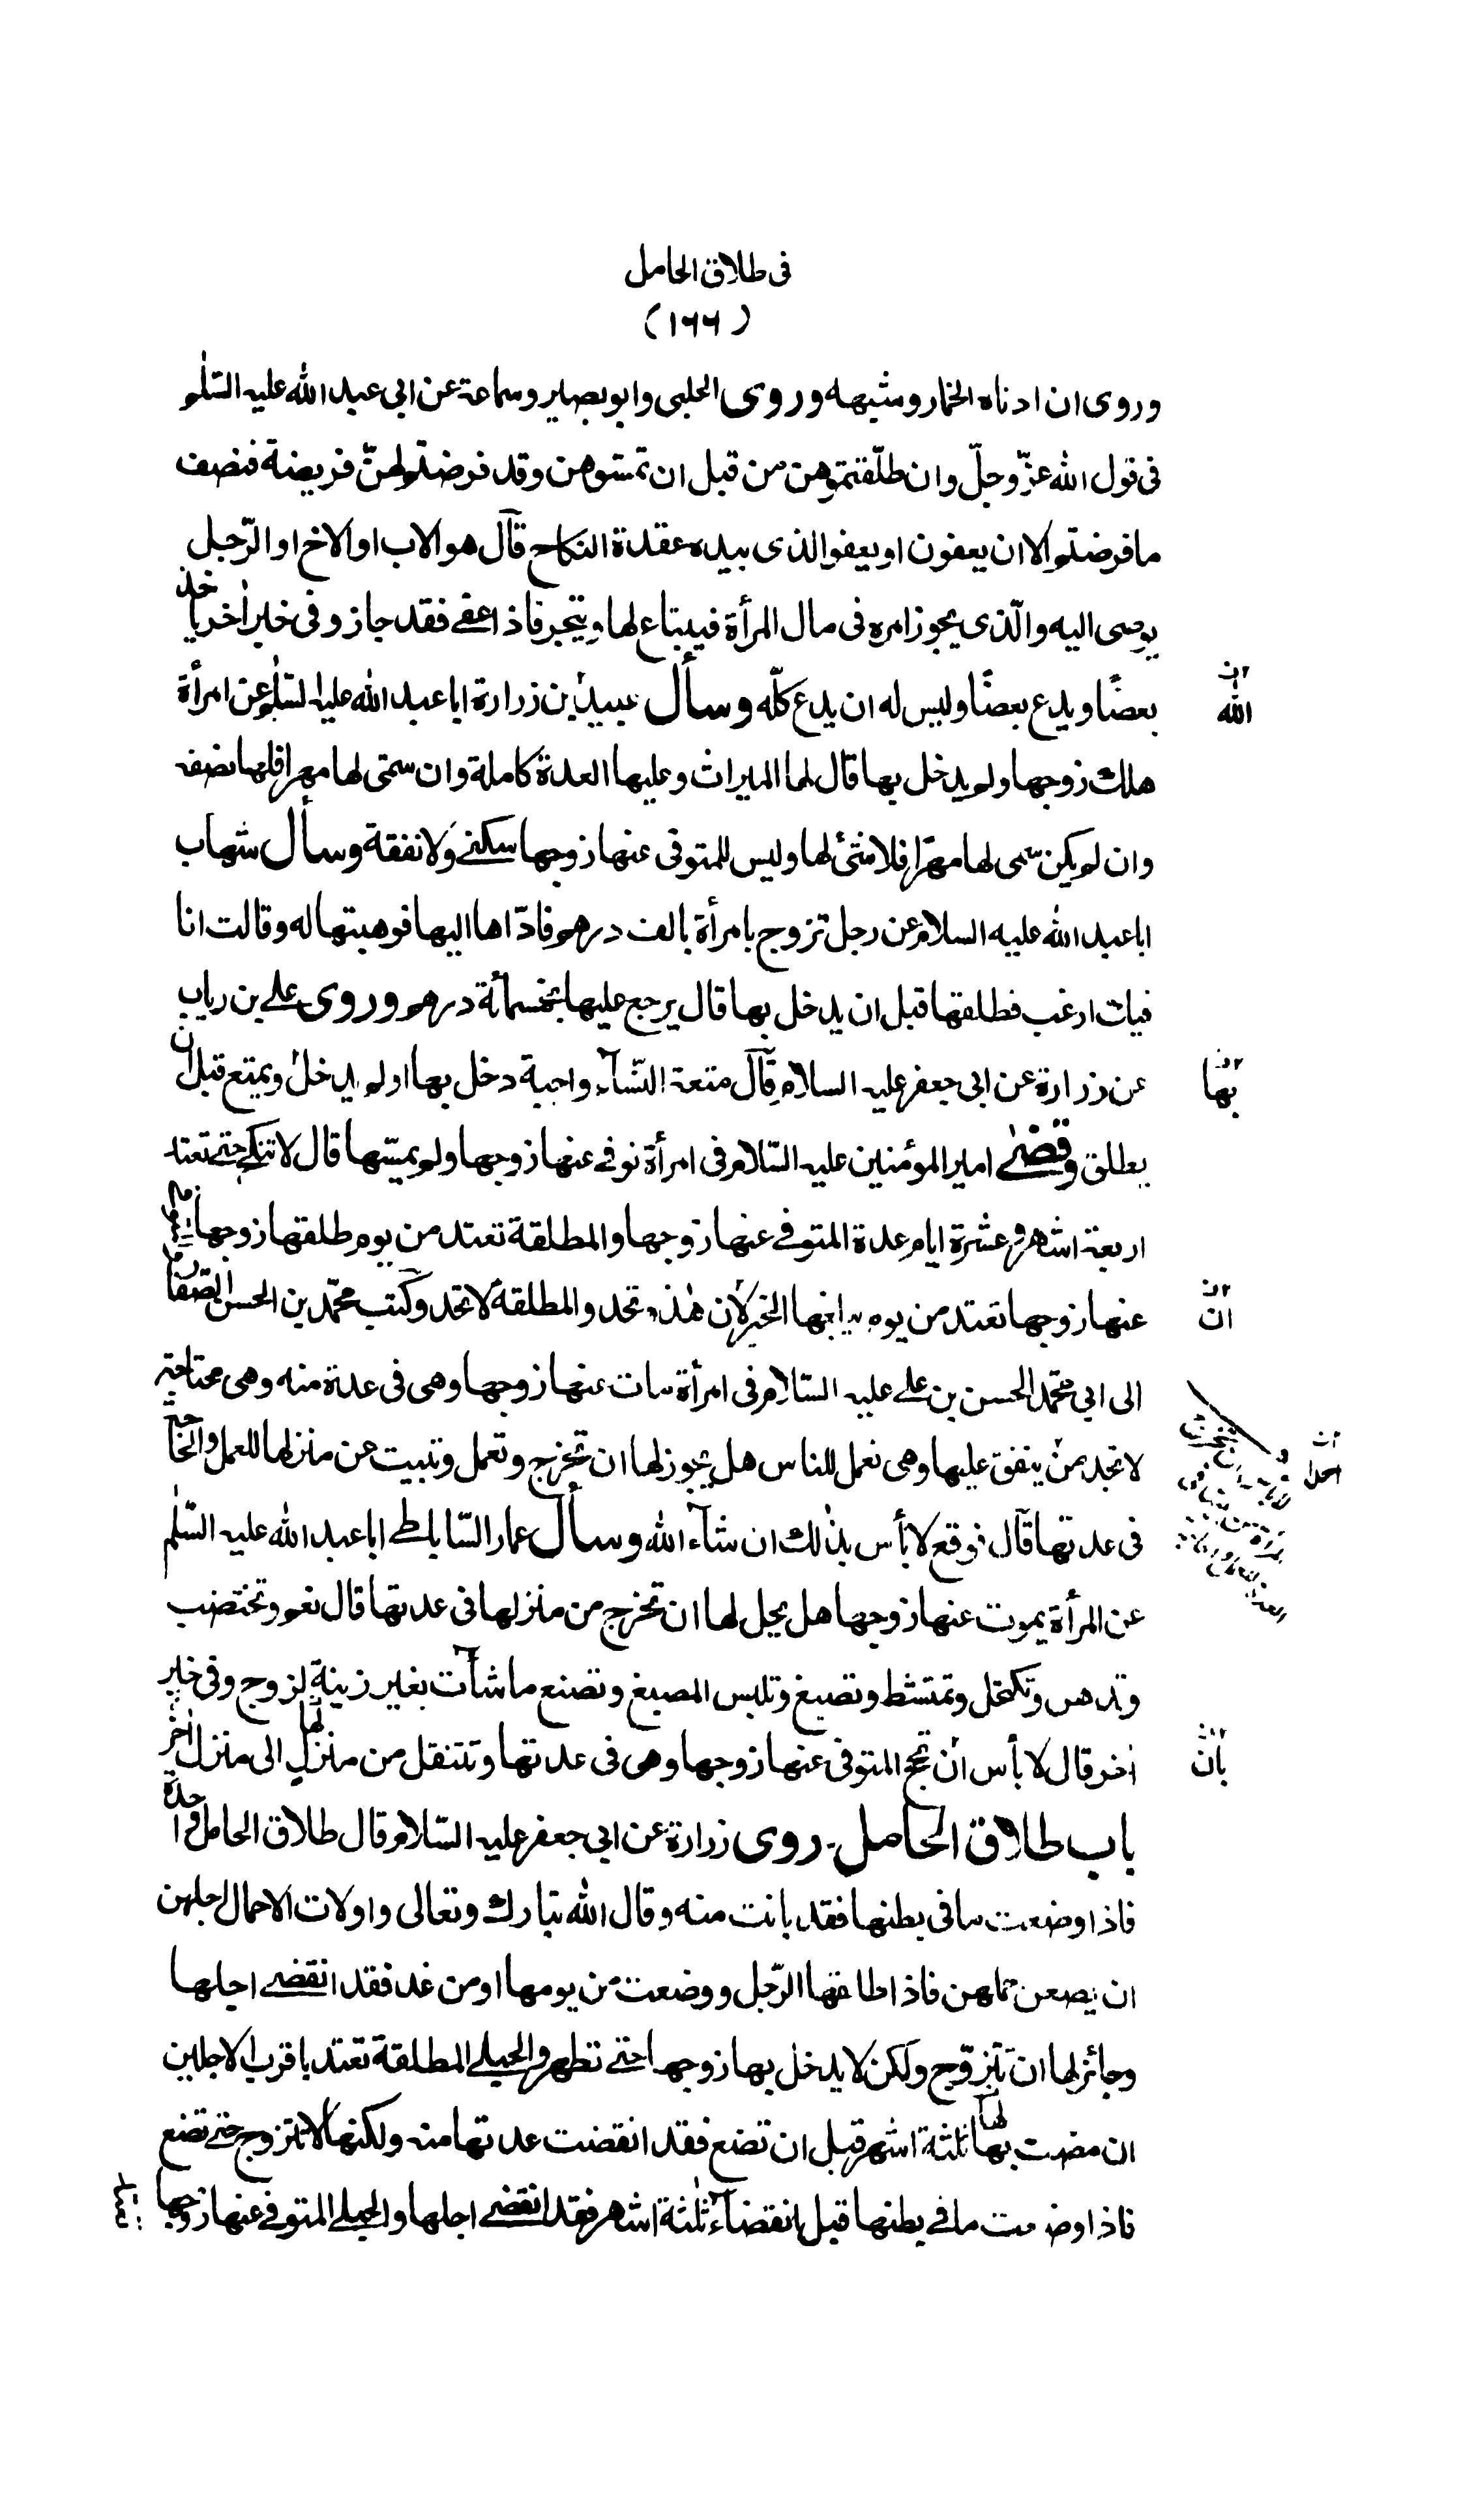 فى طلاق الحامل
(١٦٦)
وروى ان ادناه الخمار وشبهه وروى الحلبى وابو بصير وسماعة عن ابى عبد الله عليه السّلم
فى قول الله عزّ وجلّ وان طلّقتموهن من قبل ان تمسّوهن وقد فرضتم لهنّ فريضة فنصف
ما فرضتم الا ان يعفون او يعفو الذى بيده عقدة النكاح قال هو الاب او الاخ او الرّجل
يوصى اليه والّذى يجوز امره فى مال المرأة فيبتاع لها ويتجر فاذا عفى فقد جاز وفى خبر اٰخر ياخذ
بعضًا ويدع بعضًا وليس له ان يدع كلّه وسأل عبيد بن زرارة ابا عبد الله عليه السّلم عن امرأة
الله
هلك زوجها ولم يدخل بها قال لها الميراث وعليها العدة كاملة وان سمّى لها مهرا فلها نصفه
وان لم يكن سمّى لها مهرًا فلا شئ لها وليس للمتوفى عنها زوجها سكنى ولا نفقة وسأل شهاب
ابا عبد الله عليه السلام عن رجل تزوج بامرأة بالف درهم فادّاها اليها فوهبتها له وقالت انا
فيك ارغب فطلقها قبل ان يدخل بها قال يرجع عليها بخمسمائة درهم وروى على بن رياب
عن زرارة عن ابى جعفر عليه السلام قال متعة النّسآء واجبة دخل بها او لم يدخل ويمتع قبل ان
بها
يطلق وقضى امير المؤمنين عليه السّلام فى امرأة توفى عنها زوجها ولم يمسّها قال لا تنكح حتى تعتد
اربعة اشهر وعشرة ايام عدة المتوفى عنها زوجها والمطلقة تعتد من يوم طلقها زوجها والمتوفى
عنها زوجها تعتد من يوم يبلغها الخبر لان هٰذه تحد والمطلقة لا تحد وكتب محمّد بن الحسن الصّفار
ان
الى ابى محمّد الحسن بن على عليه السّلام فى امرأة مات عنها زوجها وهى فى عدة منه وهى محتاجة
لا تجد من ينفق عليها وهى تعمل للناس هل يجوز لها ان تخرج وتعمل وتبيت عن منزلها للعمل والحاجة
فى عدتها قال فوقع لا بأس بذٰلك ان شآء الله وسأل عمار السّاباطى ابا عبد الله عليه السّلم
عن المرأة يموت عنها زوجها هل يحل لها ان تخرج من منزلها فى عدتها قال نعم وتختضب
وتدهن وتكتحل وتمتشط وتصبغ وتلبس المصبغ وتصنع ما شآءت بغير زينة لزوج وفى خبر
اٰخر قال لا بأس ان تحج المتوفى عنها زوجها وهى فى عدتها وتنتقل من منزل لها الى منزل اٰخر
بان
باب طلاق الحامل روى زرارة عن ابى جعفر عليه السّلام قال طلاق الحامل واحدة
فاذا وضعت ما فى بطنها فقد بانت منه وقال الله تبارك وتعالى واولات الاحمال اجلهن
ان يضعن حملهن فاذا طلقها الرّجل ووضعت من يومها او من غد فقد انقضى اجلها
وجائز لها ان تتزوّج ولكن لا يدخل بها زوجها حتى تطهر والحبلى المطلقة تعتد باقرب الاجلين
ان مضت بها لها ثلثة اشهر قبل ان تضع فقد انقضت عدتها منه ولكنها لا تتزوج حتى تضع
فاذا وضعت ما فى بطنها قبل انقضآء ثلٰثة اشهر فقد انقضى اجلها والحبلى المتوفى عنها زوجها